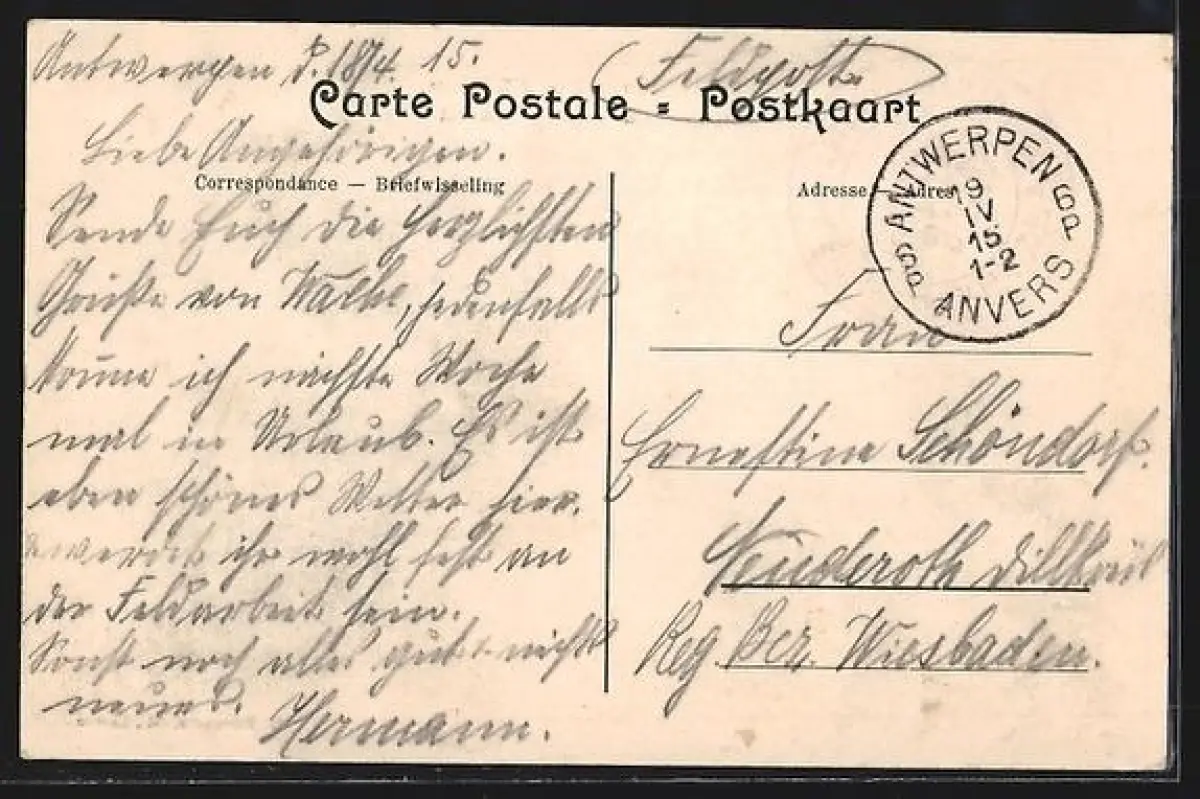 Antwerpen d. 18/4. 15.
Feldpost
Carte Postale = Postkaart
Liebe Angehörigen.
Correspondance — Briefwisseling
Adresse — Adres
ANTWERPEN 6P
19
IV
15
1-2
ANVERS
Sende Euch die herzlichsten
Grüße von Wache, jedenfalls
komme ich nächste Woche
mal in Urlaub. Es ist
eben schönes Wetter hier.
werdet ihr wohl fest an
der Feldarbeit sein.
Sonst noch alles gut nichts
neues. Hermann.
Frau
Ernestine Schöndorf.
Dillkreis
Reg. Bez. Wiesbaden.